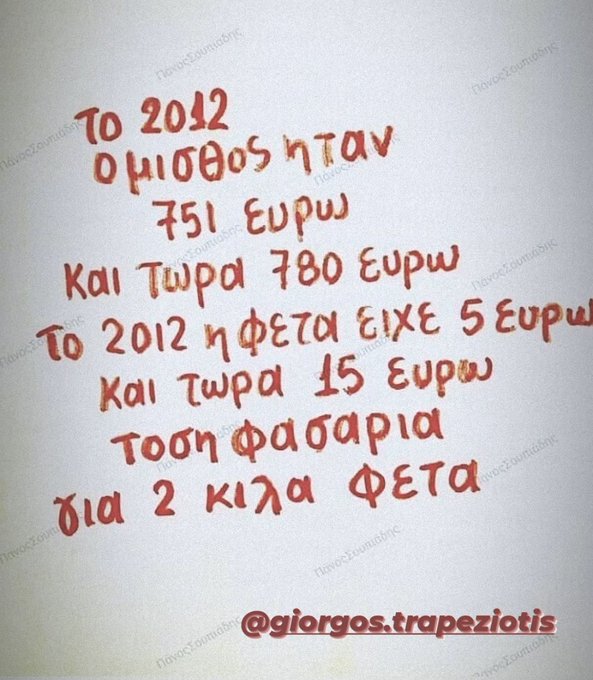 Το 2012
Ο μισθος ηταν
751 ευρω
Και τωρα 780 ευρω
Το 2012 η φετα ειχε 5 ευρω
Και τωρα 15 ευρω
τοση φασαρια
για 2 κιλα φετα
@giorgos.trapeziotis